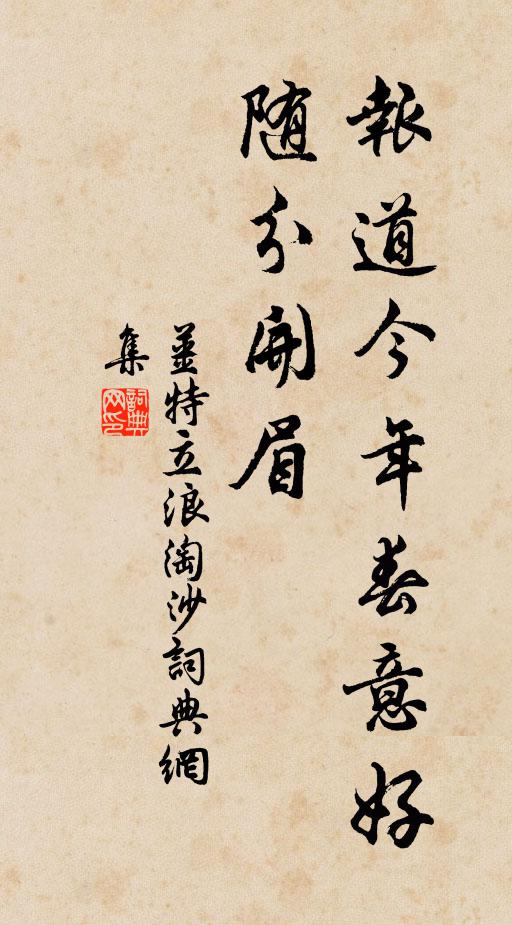 報道今年春意好
随分開眉
姜特立浪淘沙詞典網
集
詞典
网印